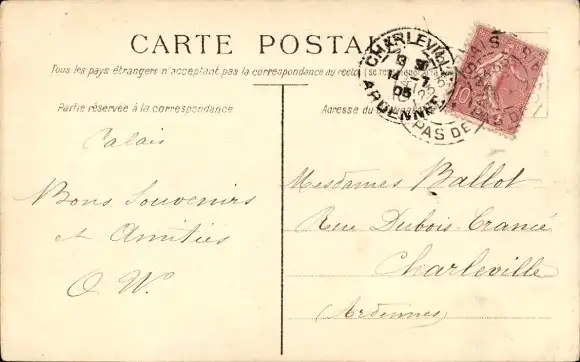 CARTE POSTALE
Tous les pays étrangers n'acceptent pas la correspondance au recto (se renseigner à la
Partie réservée à la correspondance
Adresse du
CHARLEVILLE
ARDENNES
14 -7
05
CALAIS
PAS DE
10
Calais
Bons Souvenirs
et Amitiés
O. W.
Mesdames Ballot
Rue Dubois-Crancé
Charleville
(Ardennes)